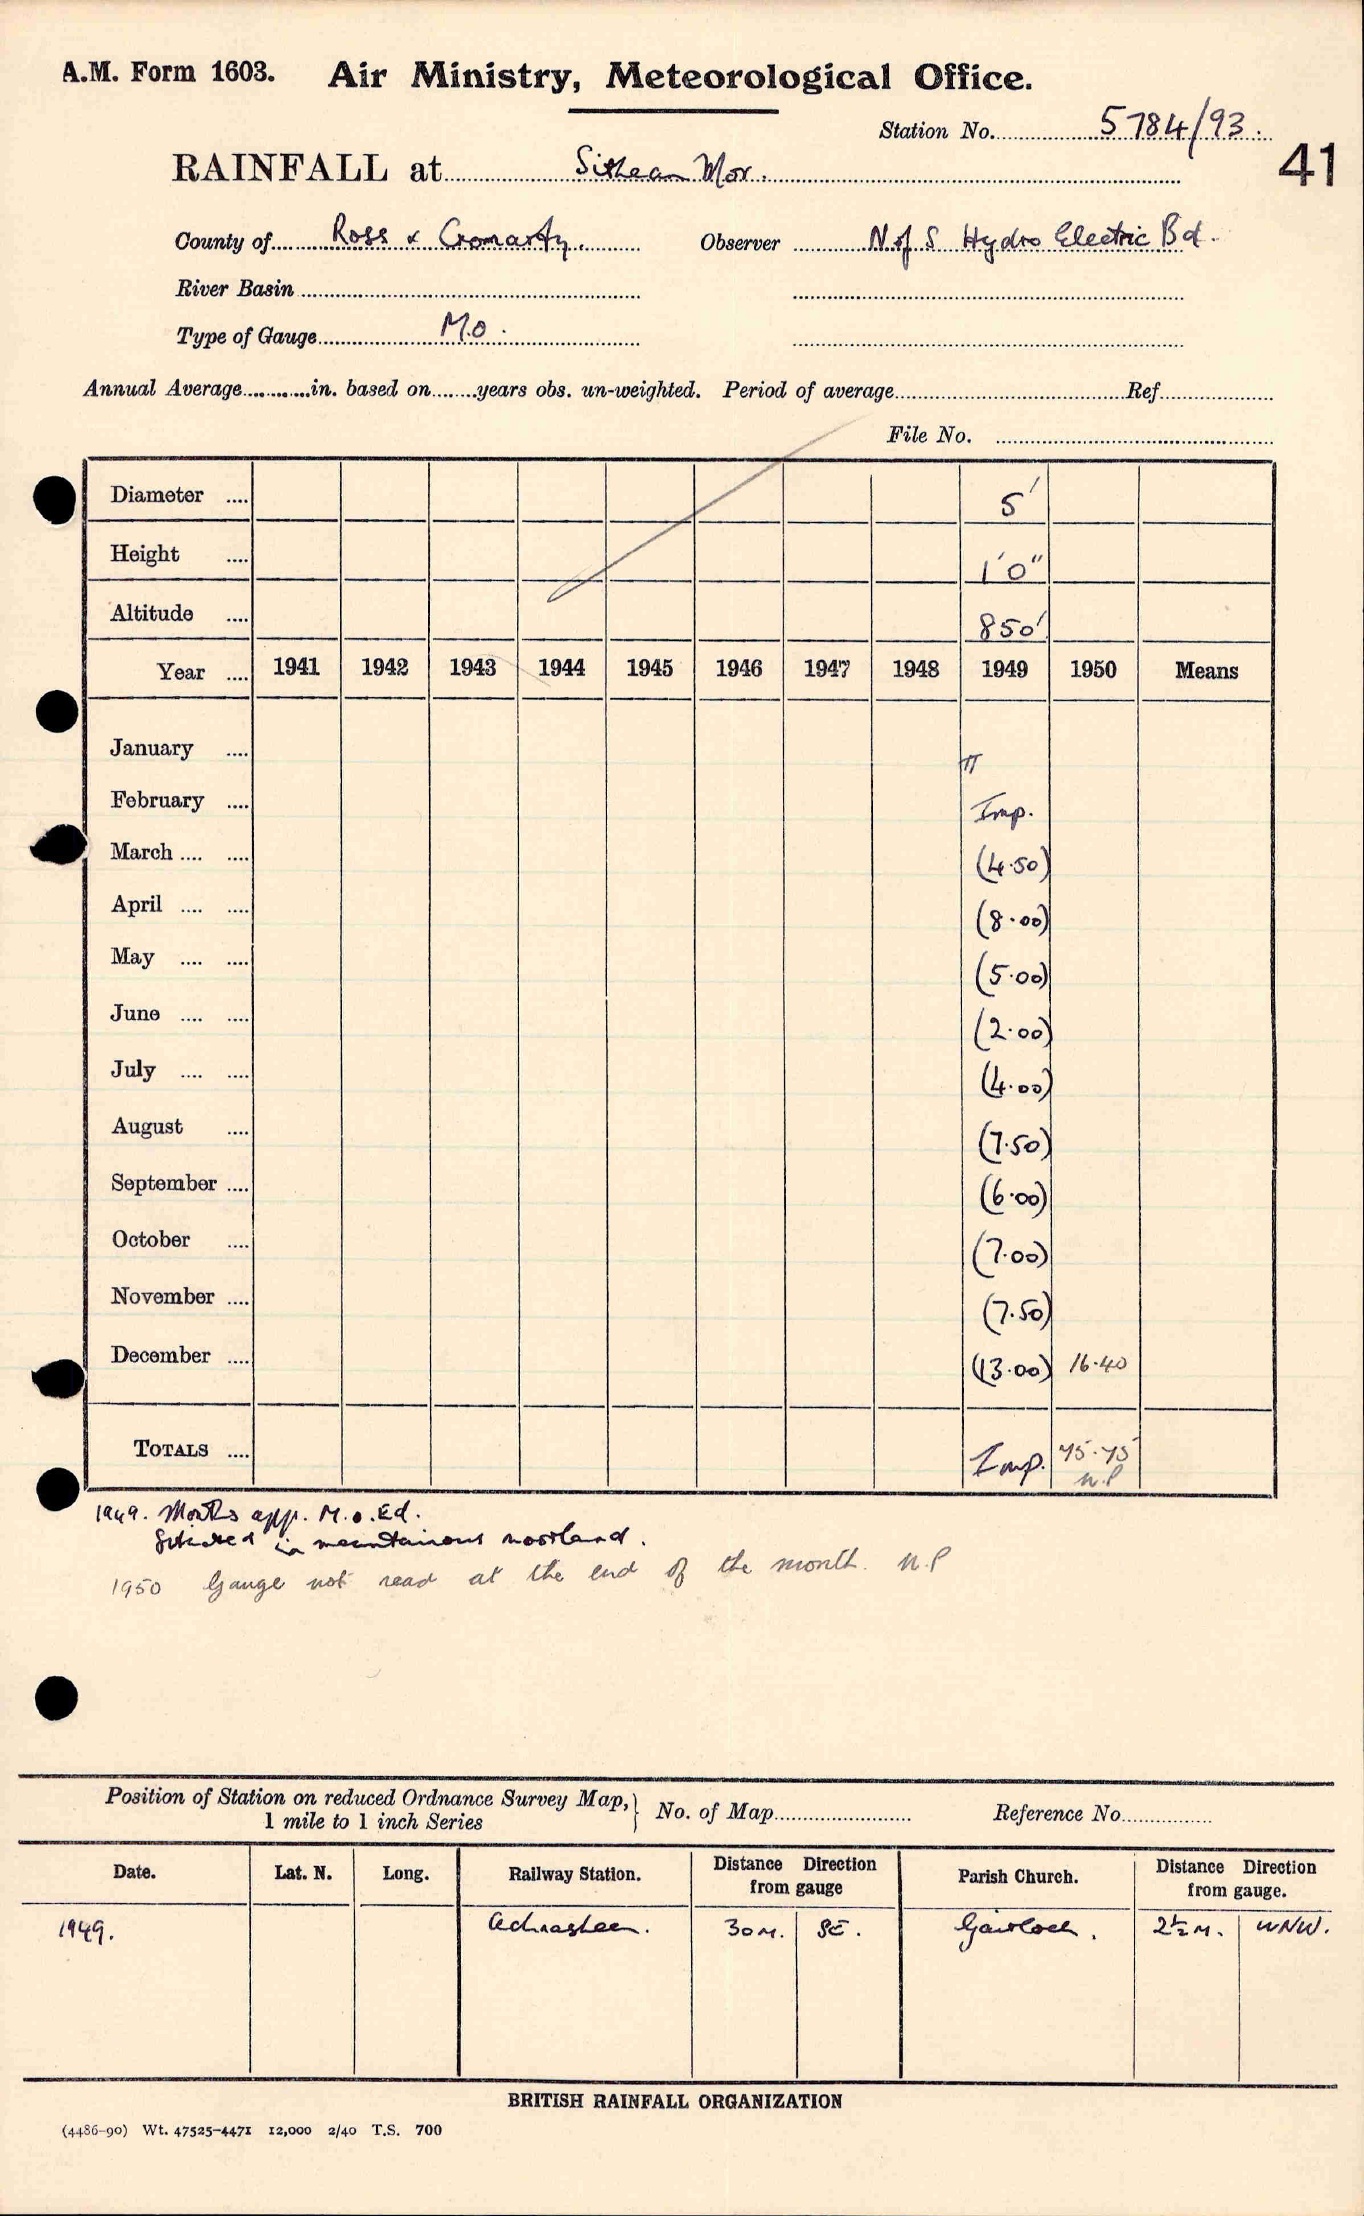 A.M. Form 1603. Air Ministry, Meteorological Office.
Station No. 5784/93.
41
RAINFALL at Sithean Mor.
County of Ross & Cromarty. Observer N of S Hydro Electric Bd.
River Basin
Type of Gauge M.O.
Annual Average in. based on years obs. un-weighted. Period of average Ref
File No.
Diameter .... 5'
Height .... 1'0"
Altitude .... 850'
Year .... 1941 1942 1943 1944 1945 1946 1947 1948 1949 1950 Means
January ....
February .... Imp.
March .... .... (4.50)
April .... .... (8.00)
May .... .... (5.00)
June .... .... (2.00)
July .... .... (4.00)
August .... (7.50)
September .... (6.00)
October .... (7.00)
November .... (7.50)
December .... (13.00) 16.40
TOTALS .... Imp. 75.75
n.P
1949. Months app. M.O. Ed.
Situated in mountainous moorland.
1950 Gauge not read at the end of the month. n.P
Position of Station on reduced Ordnance Survey Map, } No. of Map Reference No.
1 mile to 1 inch Series
Date. Lat. N. Long. Railway Station. Distance Direction from gauge Parish Church. Distance Direction from gauge.
1949. Achnasheen. 30M. SE. Gairloch. 2½M. WNW.
BRITISH RAINFALL ORGANIZATION
(4486-90) Wt. 47525-4471 12,000 2/40 T.S. 700